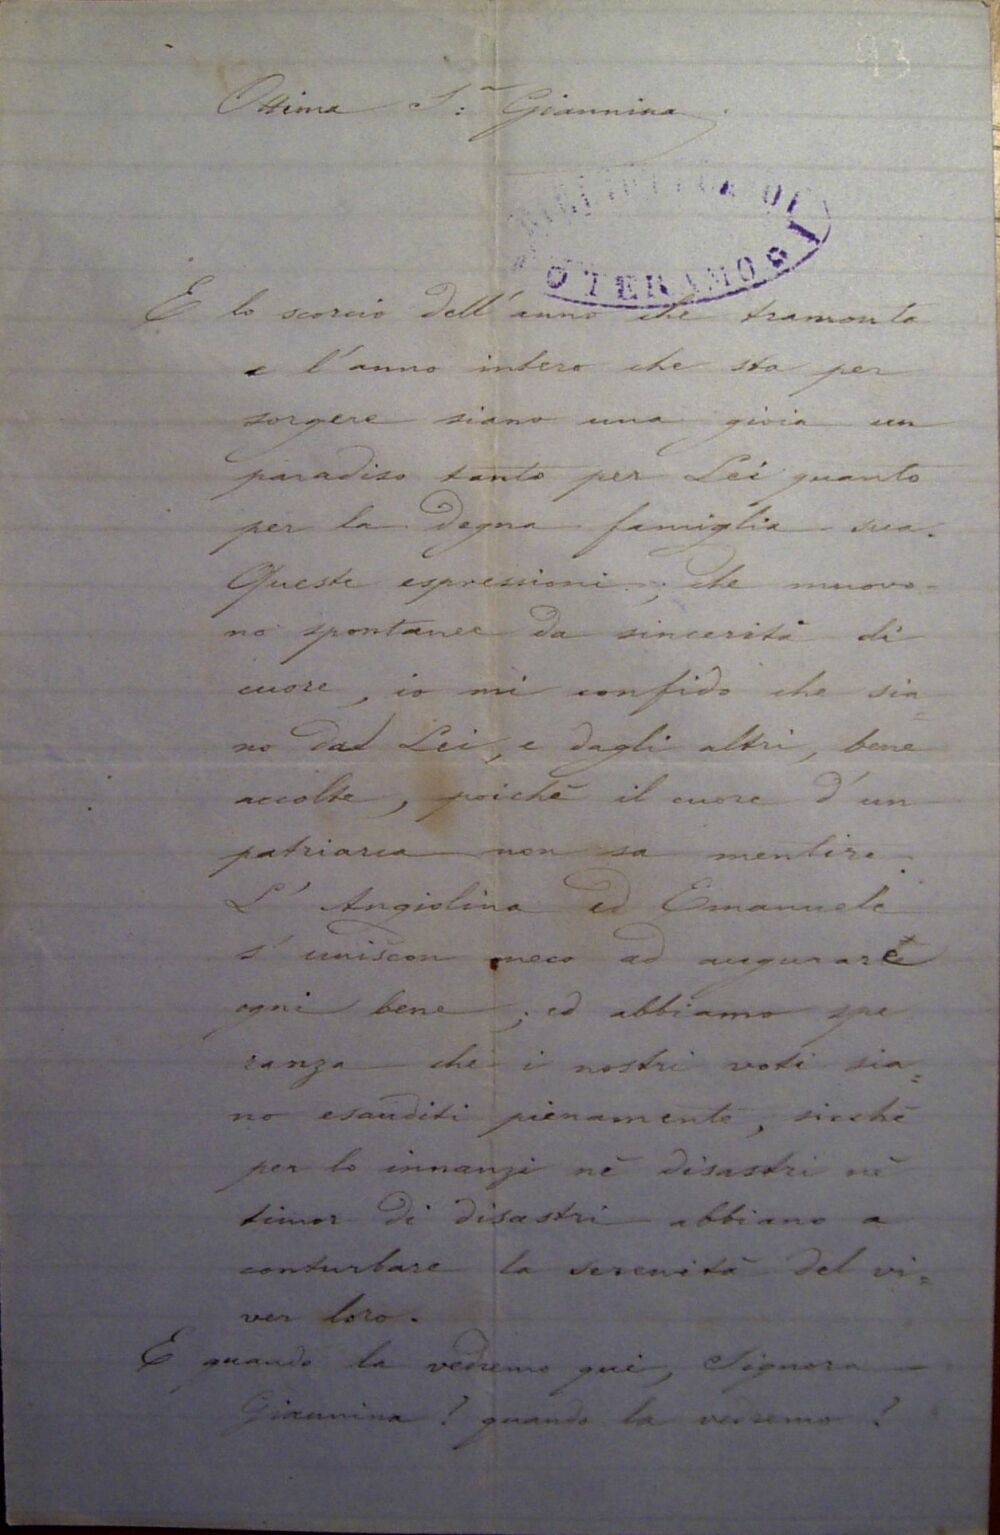 93
Ottima S:ª Giannina
BIBLIOTECA DI
TERAMO
E lo scorcio dell'anno che tramonta
e l'anno intero che sta per
sorgere siano una gioia un
paradiso tanto per Lei quanto
per la degna famiglia sua.
Queste espressioni, che muovo-
no spontanee da sincerità di
cuore, io mi confido che sia=
no dal Lei, e dagli altri, bene
accolte, poichè il cuore d'un
patriarca non sa mentire.
L'Angiolina ed Emanuele
s'uniscon meco ad augurarle
ogni bene; ed abbiamo spe
ranza che i nostri voti sia=
no esauditi pienamente, sicchè
per lo innanzi nè disastri nè
timor di disastri abbiano a
conturbare la serenità del vi=
ver loro.
E quando la vedremo qui, Signora
Giannina? quando la vedremo?